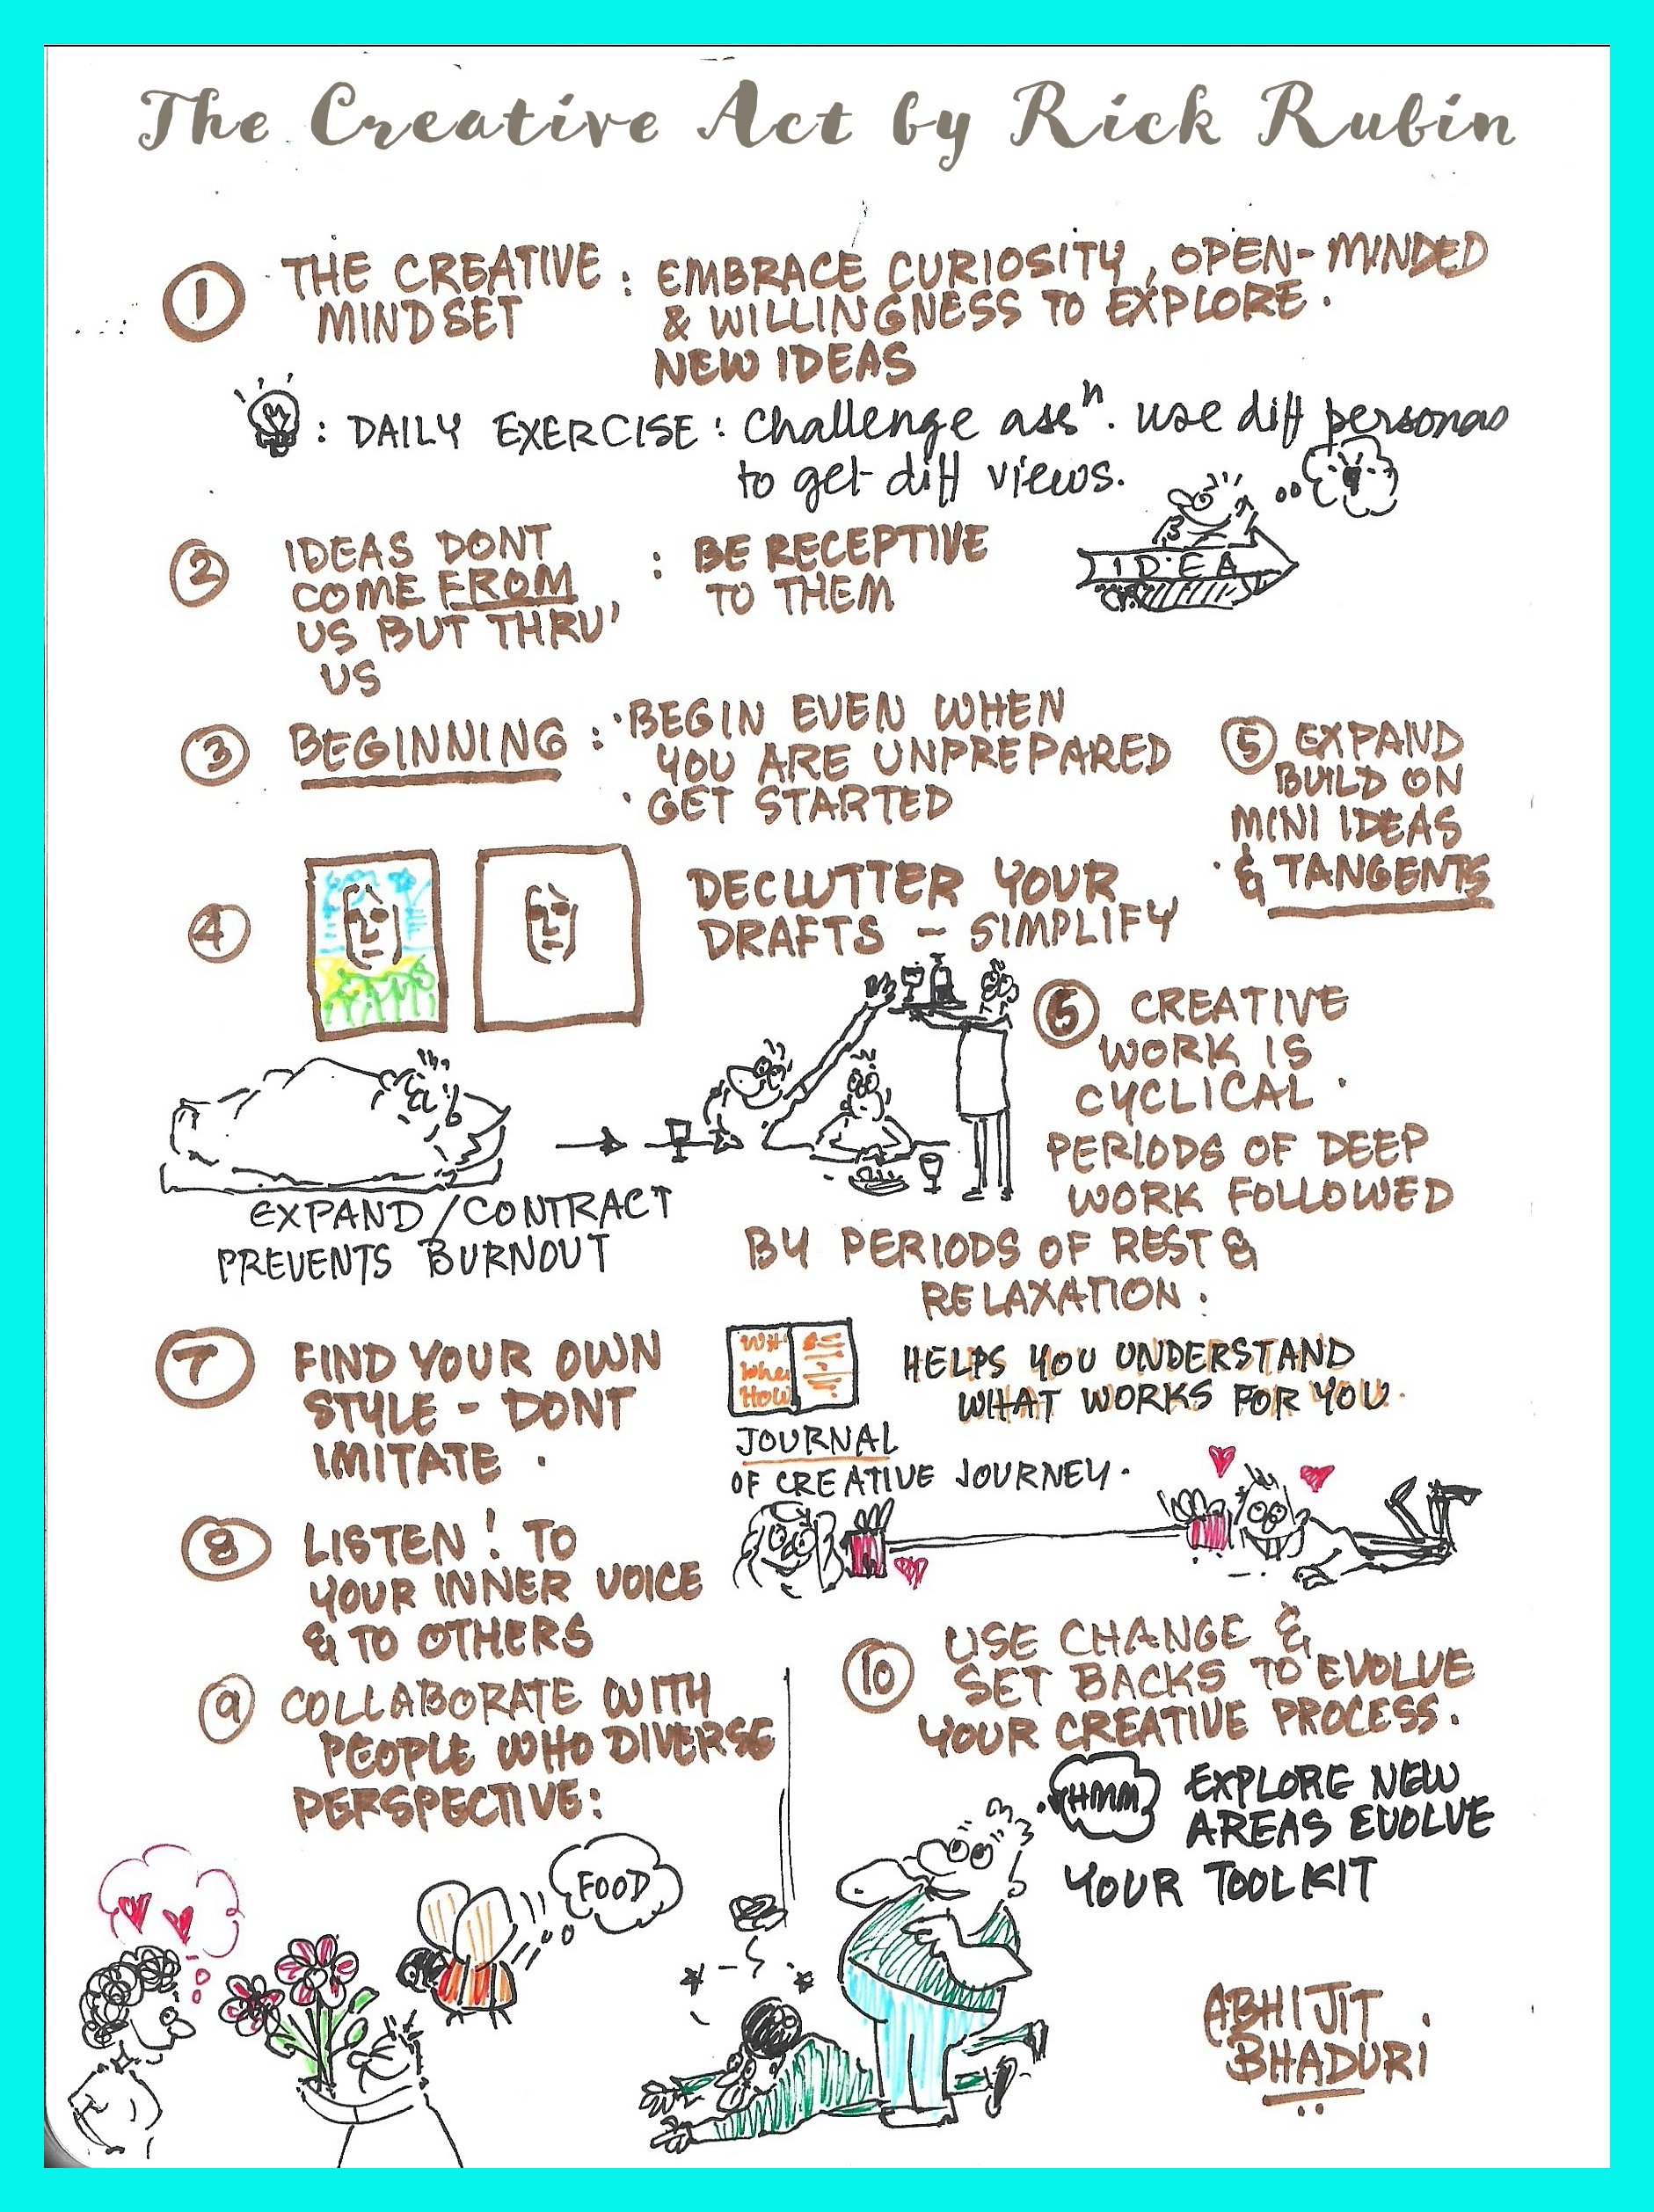 The Creative Act by Rick Rubin
1 THE CREATIVE : EMBRACE CURIOSITY, OPEN-MINDED
MINDSET & WILLINGNESS TO EXPLORE.
NEW IDEAS
: DAILY EXERCISE : Challenge assⁿ. use diff personas
to get diff views.
IDEA
2 IDEAS DONT : BE RECEPTIVE
COME FROM TO THEM
US BUT THRU'
US
3 BEGINNING : • BEGIN EVEN WHEN
YOU ARE UNPREPARED
• GET STARTED
5 EXPAND
BUILD ON
MINI IDEAS
& TANGENTS
4 DECLUTTER YOUR
DRAFTS - SIMPLIFY
6 CREATIVE
WORK IS
CYCLICAL.
PERIODS OF DEEP
WORK FOLLOWED
BY PERIODS OF REST &
RELAXATION.
EXPAND/CONTRACT
PREVENTS BURNOUT
7 FIND YOUR OWN
STYLE - DONT
IMITATE.
How
JOURNAL
OF CREATIVE JOURNEY.
HELPS YOU UNDERSTAND
WHAT WORKS FOR YOU.
8 LISTEN! TO
YOUR INNER VOICE
& TO OTHERS
9 COLLABORATE WITH
PEOPLE WHO DIVERSE
PERSPECTIVE:
FOOD
10 USE CHANGE &
SET BACKS TO EVOLVE
YOUR CREATIVE PROCESS.
HMM
EXPLORE NEW
AREAS EVOLVE
YOUR TOOLKIT
ABHIJIT
BHADURI